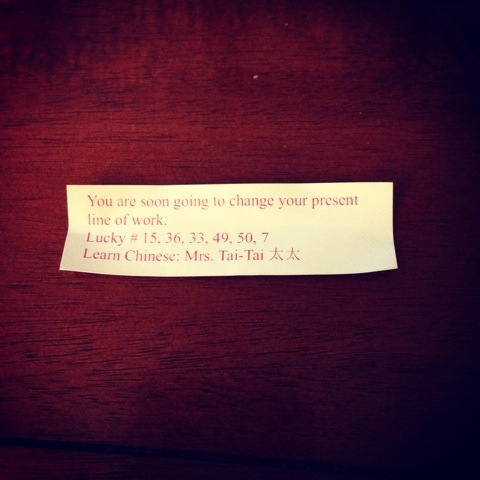 You are soon going to change your present
line of work.
Lucky # 15, 36, 33, 49, 50, 7
Learn Chinese: Mrs. Tai-Tai 太太